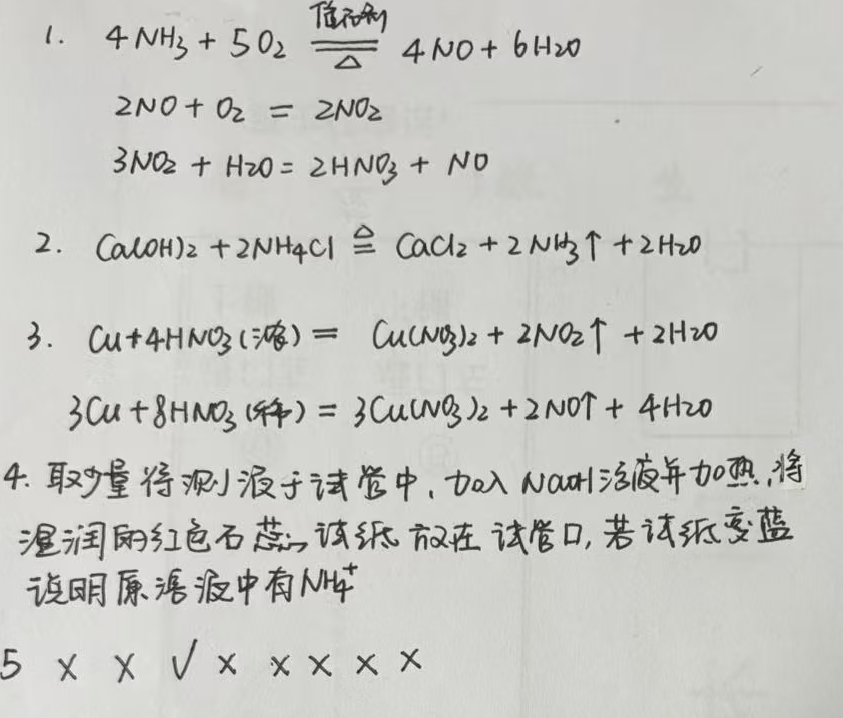 催化剂
1. 4NH3 + 5O2 ══ 4NO + 6H2O
△
2NO + O2 = 2NO2
3NO2 + H2O = 2HNO3 + NO
△
2. Ca(OH)2 + 2NH4Cl = CaCl2 + 2NH3↑ + 2H2O
3. Cu+4HNO3(浓) = Cu(NO3)2 + 2NO2↑ + 2H2O
3Cu+8HNO3(稀) = 3Cu(NO3)2 + 2NO↑ + 4H2O
4. 取少量待测液于试管中,加入NaOH溶液并加热,将
湿润的红色石蕊试纸放在试管口,若试纸变蓝
说明原溶液中有NH4+
5 × × √ × × × × ×